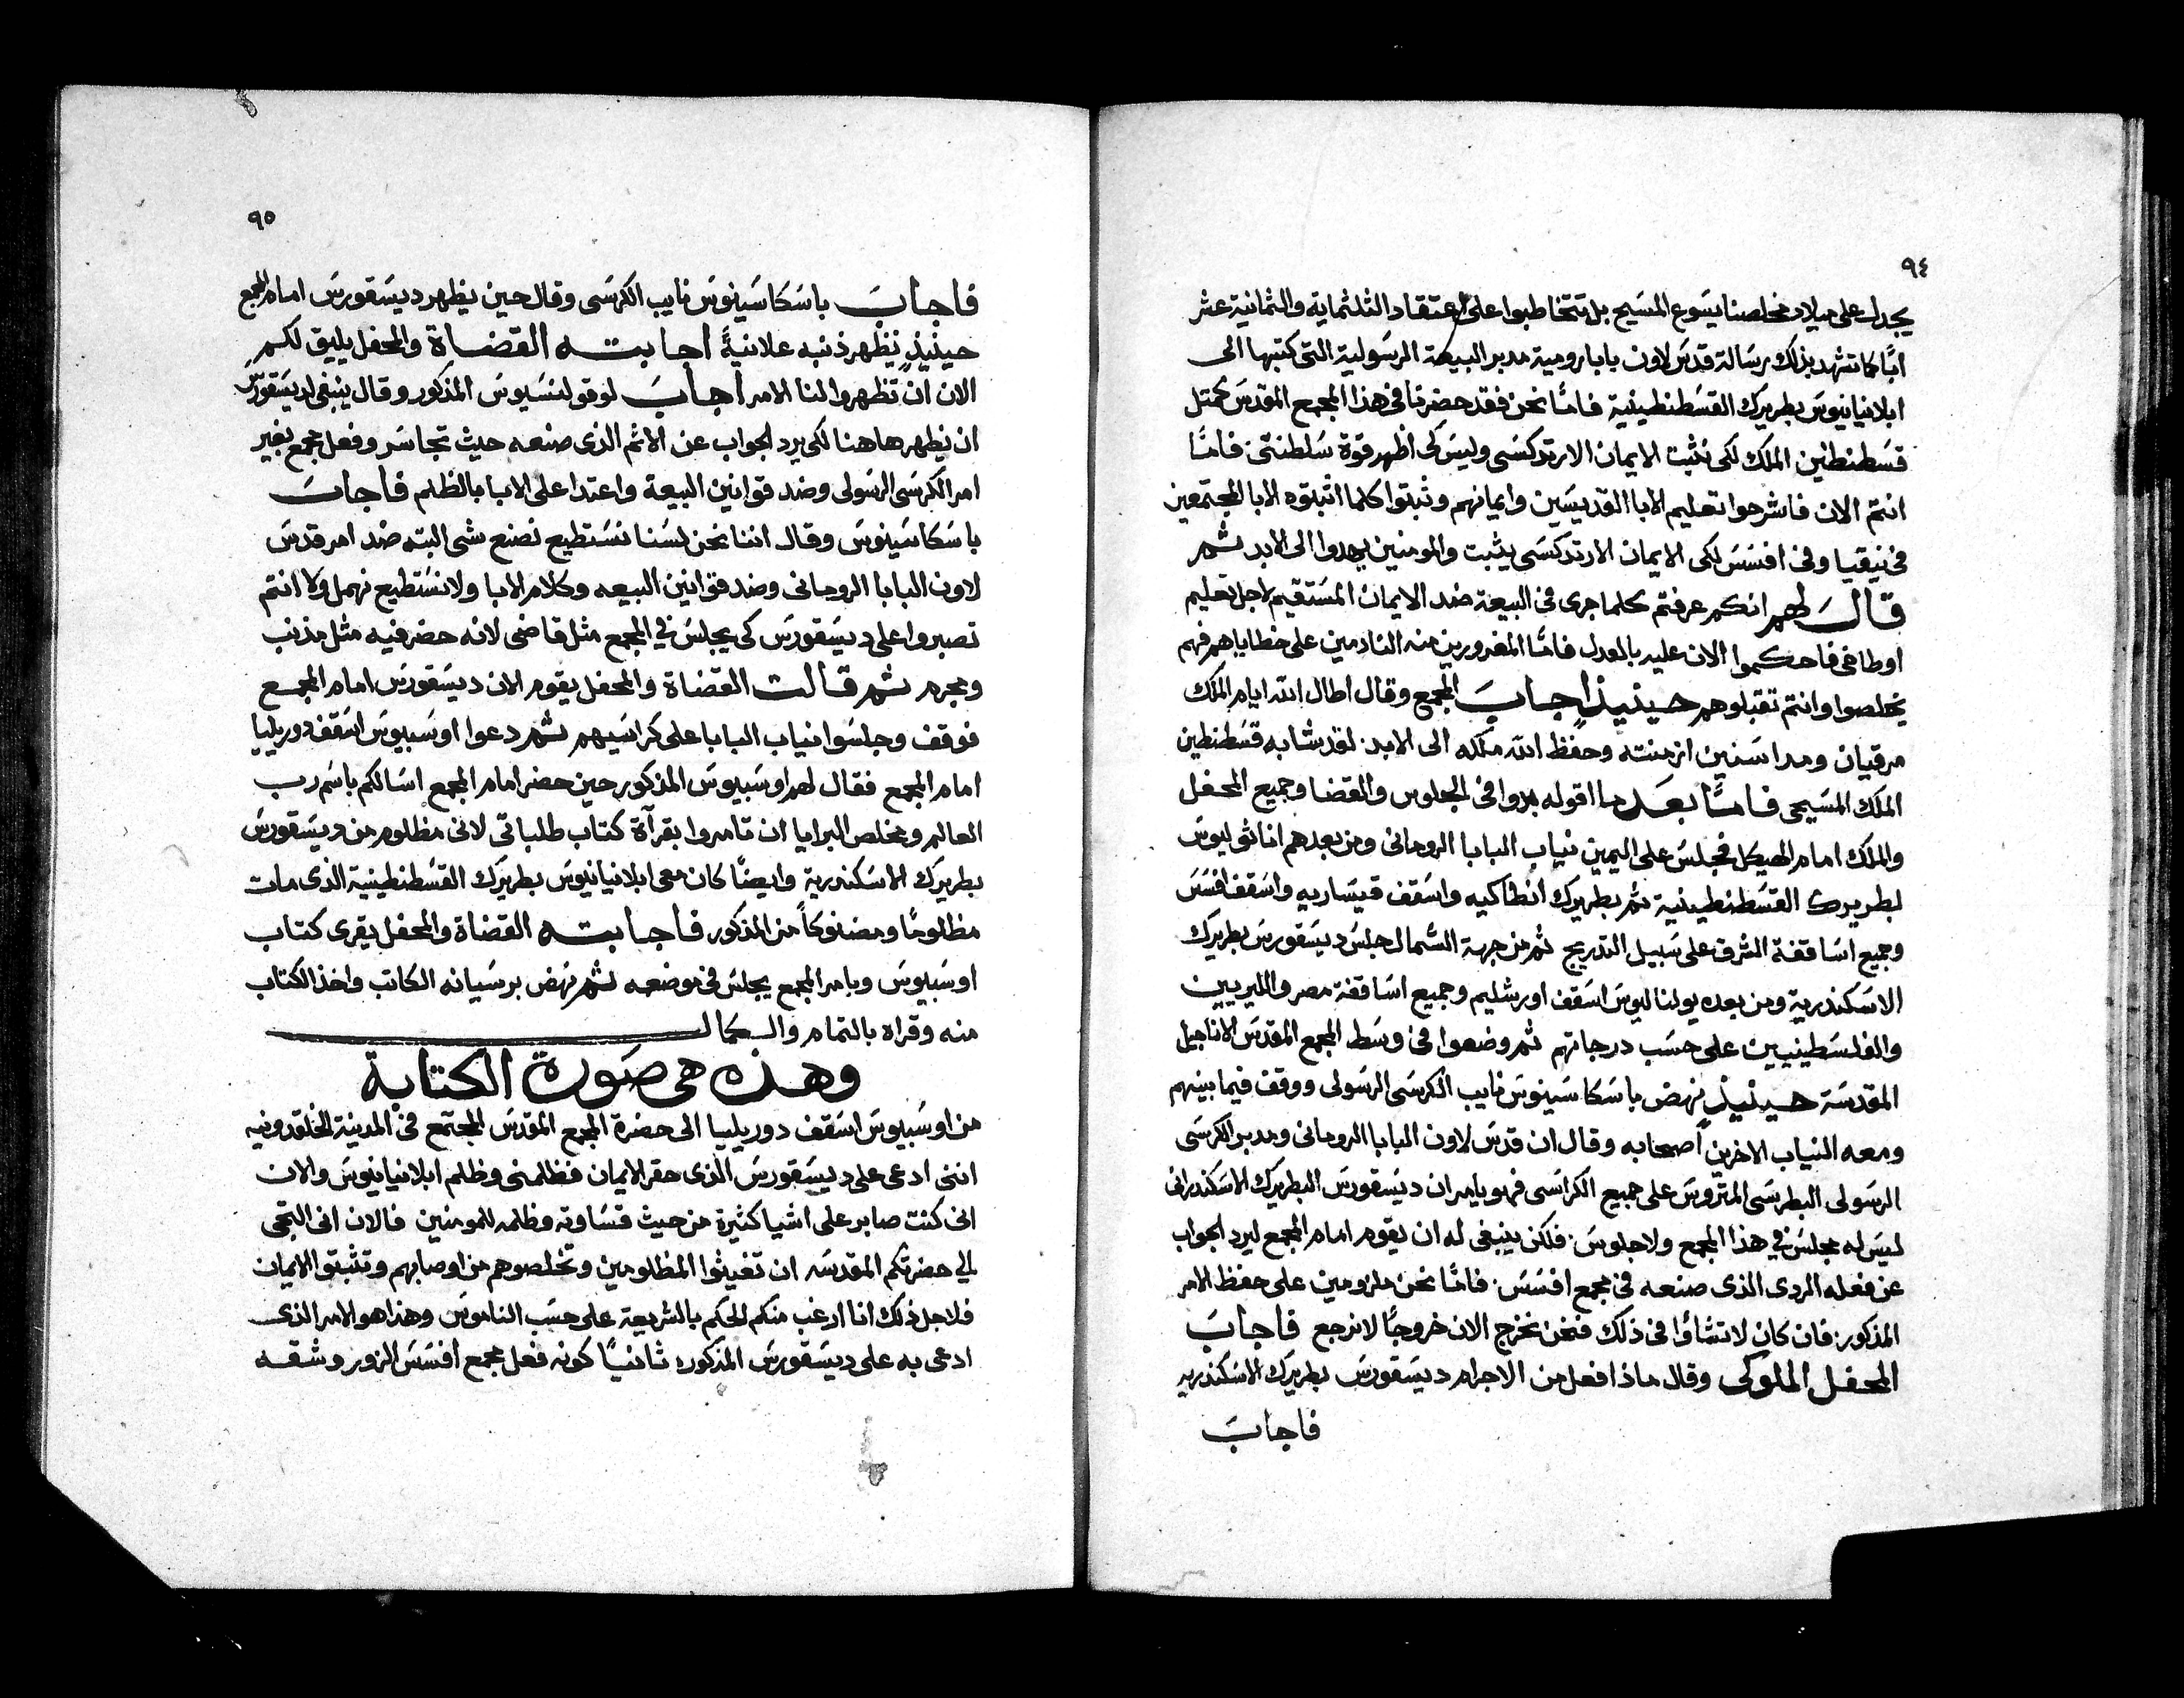 ٩٤
يجدل على ميلاد مخلصنا يسوع المسيح بل تتخاطبوا على اعتقاد الثلثماية والثمانية عشر
ابًا كما تشهد بذلك رسالة قدس لاون بابا رومية مدبر البيعة الرسولية التى كتبها الى
ابلانيانيوس بطريرك القسطنطينية فامّا نحن فقد حضرنا فى هذا المجمع المقدس كمثل
قسطنطين الملك لكى نثبت الايمان الارتدكسى وليس كى اظهر قوة سلطنتى فامّا
انتم الان فاشرحوا تعليم الابا القديسين وايمانهم وثبتوا كلما اثبتوه الابا المجتمعين
فى نيقيا وفى افسس لكى الايمان الارتدكسى يثبت والمومنين يهدوا الى الابد ثم
قال لهم انكم عرفتم كلما جرى فى البيعة ضد الايمان المستقيم لاجل تعليم
اوطاخى فاحكموا الان عليه بالعدل فامّا المغرورين منه النادمين على خطاياهم فهم
يخلصوا وانتم تقبلوهم حينيذٍ اجاب المجمع وقال اطال الله ايام الملك
مرقيان ومدا سنين ازمنته وحفظ الله ملكه الى الابد لقد شابه قسطنطين
الملك المسيحى فامّا بعد ما اقوله بدوا فى الجلوس والقضا وجميع المحفل
والملك امام الهيكل فجلس على اليمين نياب البابا الرومانى ومن بعدهم اناثوليوس
بطريرك القسطنطينية ثم بطريرك انطاكيه واسقف قيساريه واسقف افسس
وجميع اساقفة الشرق على سبيل التدريج ثم من جهة الشمال جلس ديسقورس بطريرك
الاسكندرية ومن بعده يولناليوس اسقف اورشليم وجميع اساقفة مصر والليريين
والفلسطينيين على حسب درجاتهم ثم وضعوا فى وسط المجمع المقدس الاناجيل
المقدسة حينيذٍ نهض باسكاسينوس نايب الكرسى الرسولى ووقف فيما بينهم
ومعه النياب الاخرين اصحابه وقال ان قدس لاون البابا الرومانى ومدبر الكرسى
الرسولى البطرسى المتروس على جميع الكراسى فهو يامر ان ديسقورس البطريرك الاسكندرانى
ليس له مجلس فى هذا المجمع ولا جلوس فلكن ينبغى له ان يقوم امام المجمع ليرد الجواب
عن فعله الردى الذى صنعه فى مجمع افسس فامّا نحن ملزومين على حفظ الامر
المذكور فان كان لا تشاؤا فى ذلك فنحن نخرج الان خروجًا لا نرجع فاجاب
المحفل الملوكى وقال ماذا فعل من الاجرام ديسقورس بطريرك الاسكندريه
فاجاب
٩٥
فاجاب باسكاسينوس نايب الكرسى وقال حين يظهر ديسقورس امام المجمع
حينيذٍ يظهر ذنبه علانيةً اجابته القضاة والمحفل يليق لكم
الان ان تظهروا لنا الامر اجاب لوقولنسيوس المذكور وقال ينبغى لديسقورس
ان يظهر هاهنا لكى يرد الجواب عن الاثم الذى صنعه حيث تجاسر وفعل مجمع بغير
امر الكرسى الرسولى وضد قوانين البيعة واعتدا على الابا بالظلم فاجاب
باسكاسينوس وقال اننا نحن لسنا نستطيع نصنع شى البته ضد امر قدس
لاون البابا الرومانى وضد قوانين البيعه وكلام الابا ولا نستطيع نهمل ولا انتم
تصبروا على ديسقورس كى يجلس فى المجمع مثل قاضى لانه حضر فيه مثل مذنب
ومجرم ثم قالت القضاة والمحفل يقوم الان ديسقورس امام المجمع
فوقف وجلسوا نياب البابا على كراسيهم ثم دعوا اوسبيوس اسقف دوريليا
امام المجمع فقال لهم اوسبيوس المذكور حين حضر امام المجمع اسالكم باسم رب
العالم ومخلص البرايا ان تامروا بقرآة كتاب طلباتى لانى مظلوم من ديسقورس
بطريرك الاسكندرية وايضًا كان معى ابلانيانيوس بطريرك القسطنطينية الذى مات
مظلومًا ومضنوكاً من المذكور فاجابته القضاة والمحفل يقرى كتاب
اوسبيوس وبامر المجمع يجلس فى موضعه ثم نهض برسيانه الكاتب واخذ الكتاب
منه وقراه بالتمام والكمال
وهذه هى صورة الكتابة
من اوسبيوس اسقف دوريليا الى حضرة المجمع المقدس المجتمع فى المدينة الخلقدونيه
اننى ادعى على ديسقورس الذى حقر الايمان فظلمنى وظلم ابلانيانيوس والان
انى كنت صابر على اشيا كثيرة من حيث قساوته وظلمه للمومنين فالان انى التجى
الى حضرتكم المقدسه ان تغيثوا المظلومين وتخلصوهم من اوصابهم وتثبتوا الايمان
فلاجل ذلك انا ارغب منكم الحكم بالشريعة على حسب الناموس وهذا هو الامر الذى
ادعى به على ديسقورس المذكور ثانيًا كونه فعل مجمع افسس الزور وشقه